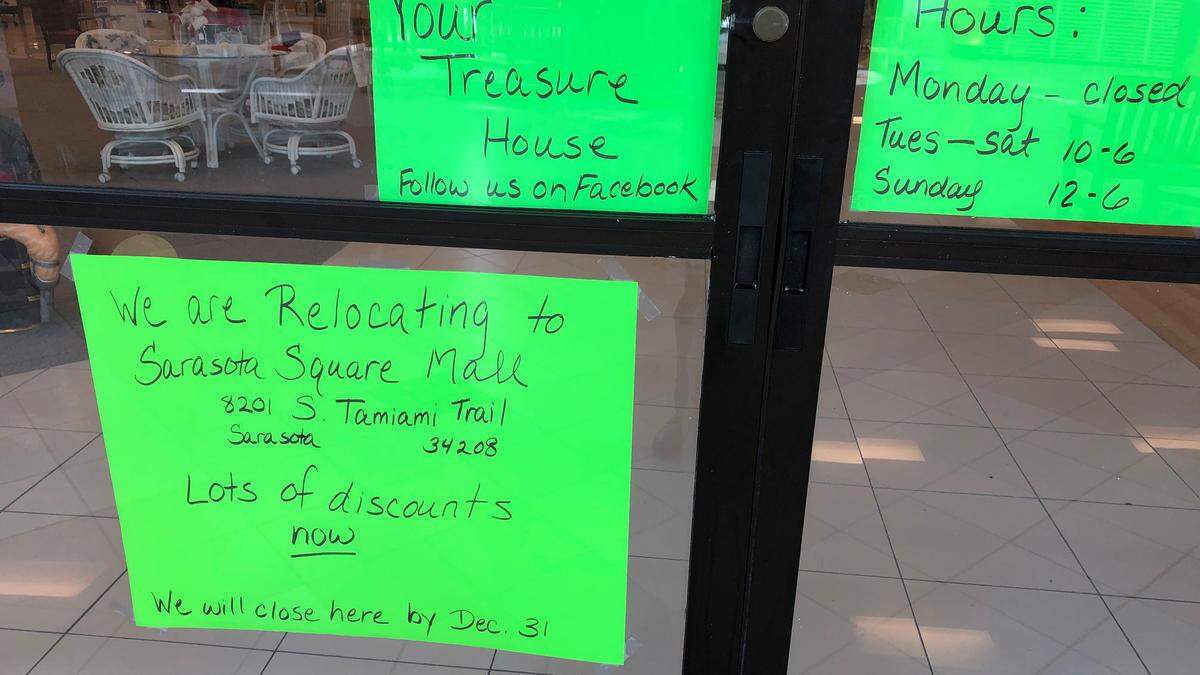 Your
Treasure
House
Follow us on Facebook
Hours:
Monday - closed
Tues - sat 10-6
Sunday 12-6
We are Relocating to
Sarasota Square Mall
8201 S. Tamiami Trail
Sarasota 34208
Lots of discounts
now
We will close here by Dec. 31